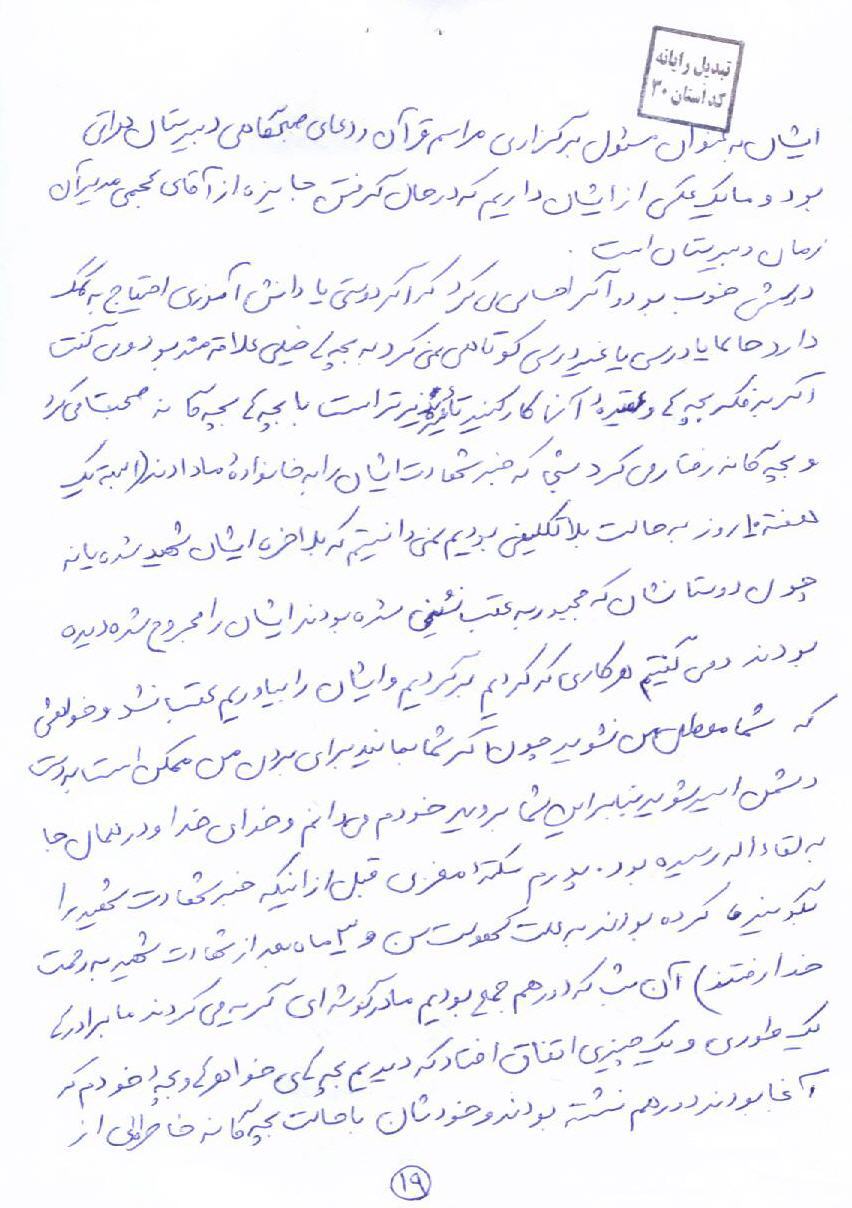 تبدیل رایانه
کد استان ۳۰
ایشان به عنوان مسئول برگزاری مراسم قرآن و دعای صبحگاهی دبیرستان
بود و ما یک عکس از ایشان داریم که در حال گرفتن جایزه از آقای مدیر آن
زمان دبیرستان است .
درسش خوب بود و اگر احساس می کرد که اگر دوستی یا دانش آموزی احتیاج به کمک
دارد حالا یا درسی یا غیر درسی کوتاهی نمی کرد به بچه ها خیلی علاقه مند بود و می گفت
اگر به فکر بچه ها و عقیدهٔ آنها کار کنید تأثیر پذیرتر است با بچه ها بچه گانه صحبت می کرد
و بچه گانه رفتار می کرد شبی که خبر شهادت ایشان را به خانوادهٔ ما دادند (البته یک
هفته ۱۰ روز به حالت بلاتکلیفی بودیم نمی دانستیم که بلاخره ایشان شهید شده یا نه
چون دوستانشان که مجبور به عقب نشینی شده بودند ایشان را مجروح شده دیده
بودند و می گفتیم هر کاری که کردیم برگردیم و ایشان را بیاوریم عقب نشد و خودش
که شما معطل من نشوید چون اگر شما بمانید برای بردن من ممکن است به دست
دشمن اسیر شوید بنابراین شما بروید خودم می دانم و خدای خدا و در همان جا
به لقاء اله رسیده بود . پدرم سکتهٔ مغزی قبل از اینکه خبر شهادت شهید را
بگویند کرده بودند به علت کهولت سن و ۳ ماه بعد از شهادت شهید به رحمت
خدا رفتند) آن شب که دور هم جمع بودیم مادر گوشه ای گریه می کردند ما برادرها
یک طوری و یک چیزی اتفاق افتاد که دیدیم بچه های خواهرها و بچهٔ خودم که
آنجا بودند دور هم نشسته بودند و خودشان با حالت بچه گانه خاطراتی از
۱۹